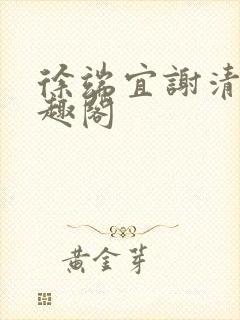 徐端宜謝清
趣閣
黄金芽